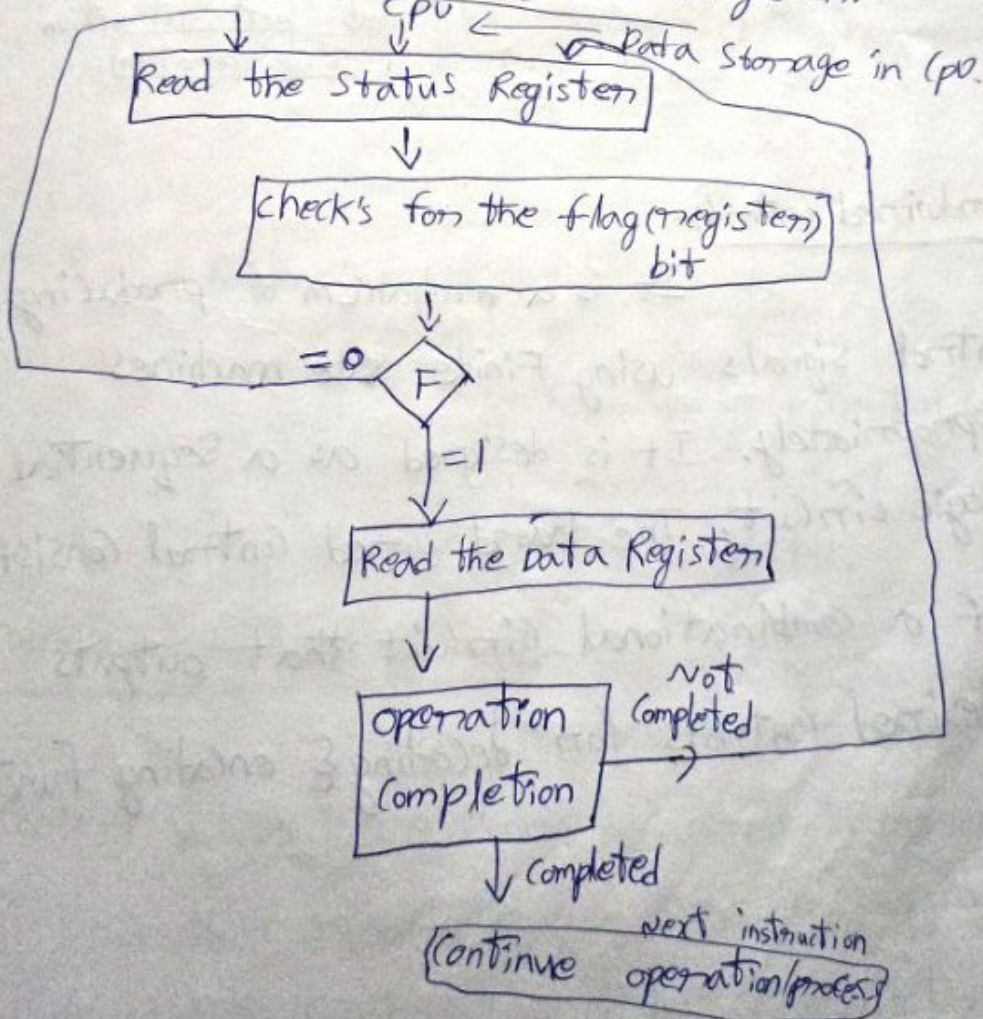 CPU
Data Storage in CPU.
Read the Status Register
Check's for the flag(register)
bit
= 0
F
= 1
Read the Data Register
Operation
Completion
Not
Completed
Completed
Next instruction
Continue operation/process